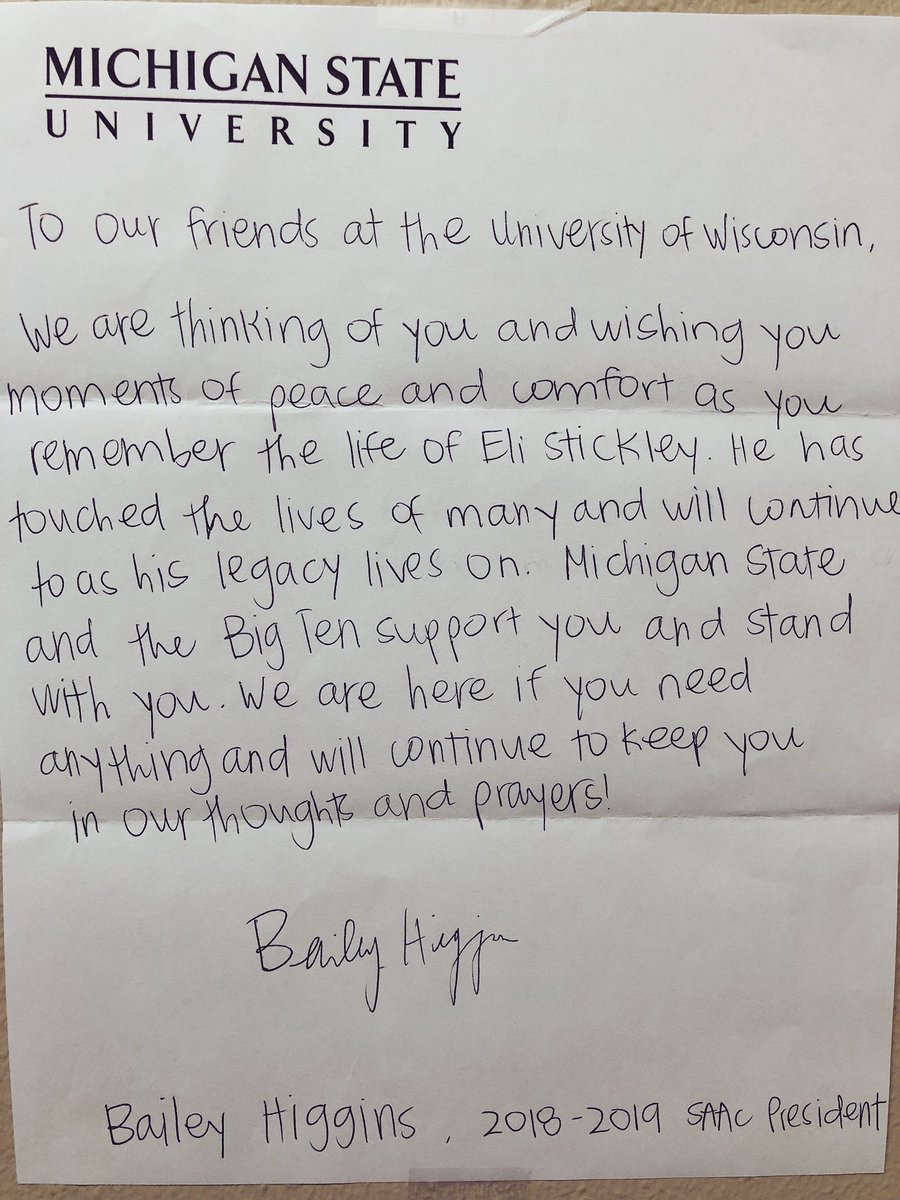 MICHIGAN STATE
UNIVERSITY
To our friends at the University of Wisconsin,
We are thinking of you and wishing you
moments of peace and comfort as you
remember the life of Eli Stickley. He has
touched the lives of many and will continue
to as his legacy lives on. Michigan State
and the Big Ten support you and stand
with you. We are here if you need
anything and will continue to keep you
in our thoughts and prayers!
Bailey Higgins
Bailey Higgins, 2018-2019 SAAC President